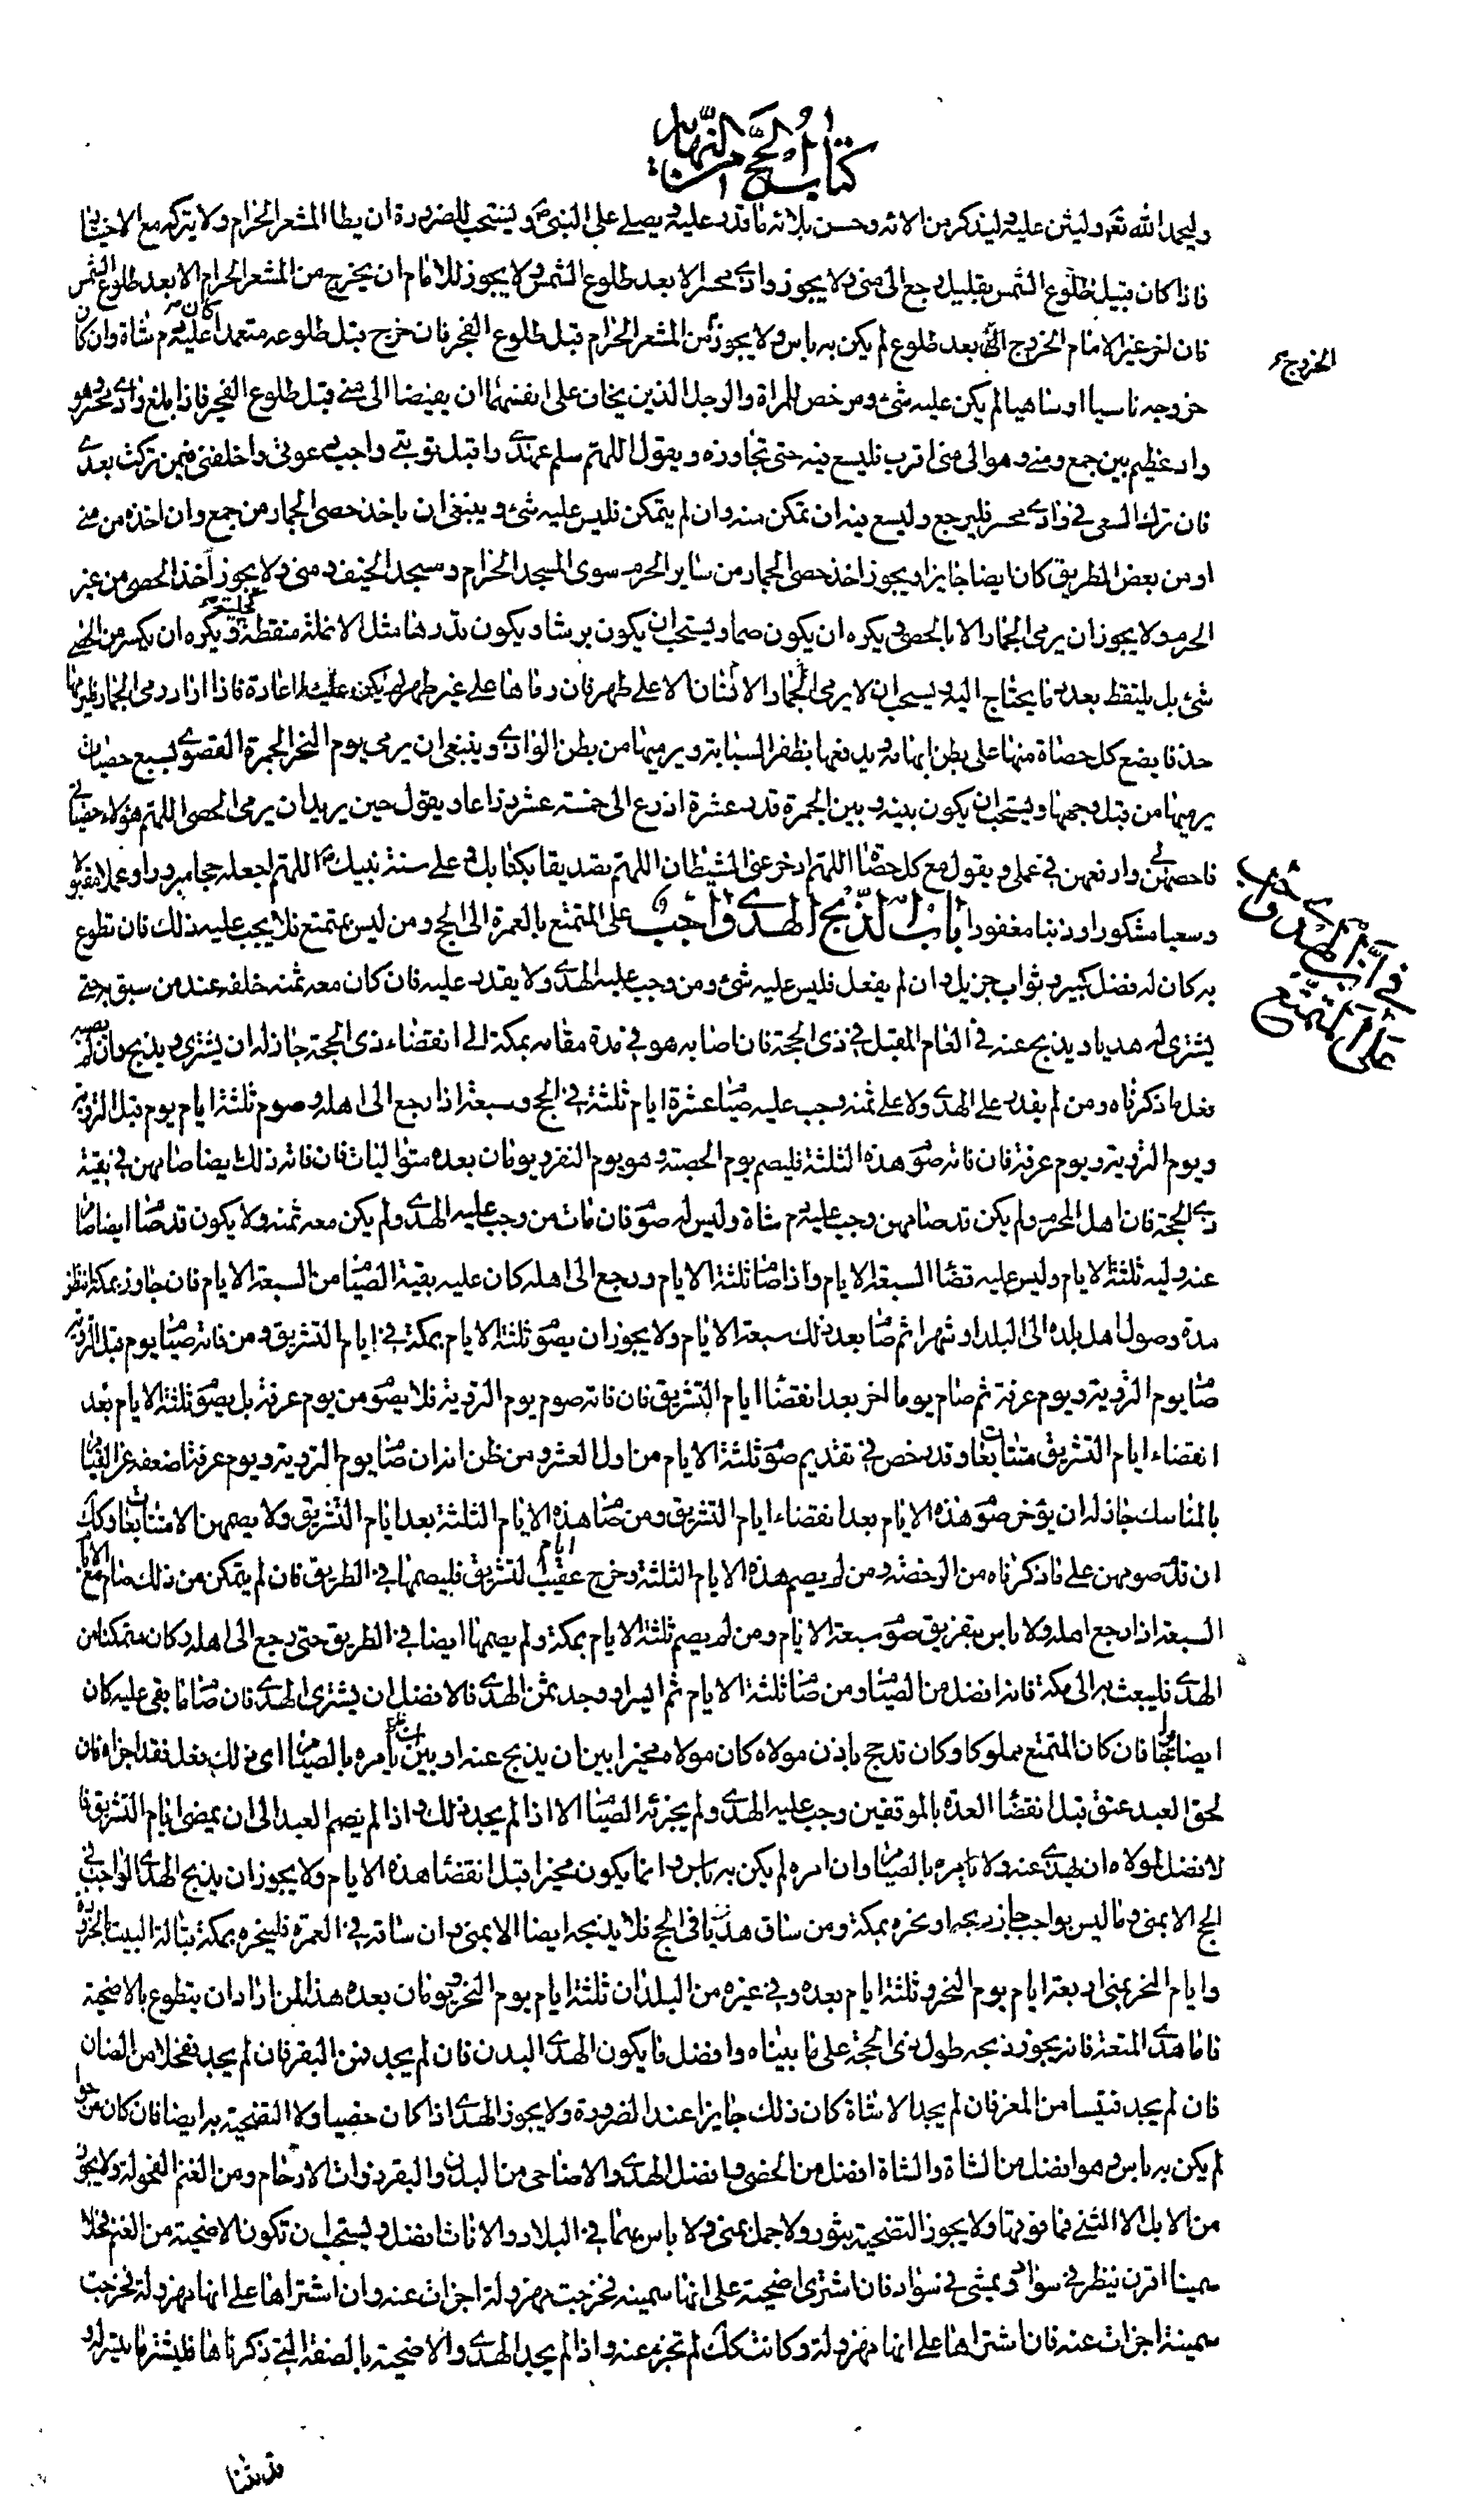 كتاب الحج من النهاية
وليحمد الله تعالى وليثن عليه وليذكر من الائه وحسن بلائه ما قدر عليه ويصلى على النبي ص ويستحب للصرورة ان يطا المشعر الحرام ولا يتركه مع الاختيار
فاذا كان قبل طلوع الشمس بقليل رجع الى منى ولا يجوز وادى محسر الا بعد طلوع الشمس ولا يجوز للامام ان يخرج من المشعر الحرام الا بعد طلوع الشمس
فان اخر غير الامام الخروج الى بعد طلوع لم يكن به باس ولا يجوز الخروج من المشعر الحرام قبل طلوع الفجر فان خرج قبل طلوعه متعمدا كان عليه دم شاة وان كان
خروجه ناسيا او ساهيا لم يكن عليه شئ ومرخص للمراة والرجل الذين يخاف على انفسهما ان يفيضا الى منى قبل طلوع الفجر فاذا بلغ وادى محسر وهو
واد عظيم بين جمع ومنى وهو الى منى اقرب فليسع فيه حتى تجاوزه ويقول اللهم سلم عهدى واقبل توبتى واجب دعوتى واخلفنى فيمن تركت بعدى
فان ترك السعى في وادى محسر فليرجع وليسع فيه ان تمكن منه وان لم يتمكن فليس عليه شئ وينبغى ان ياخذ حصى الجمار من جمع وان اخذه من منى
او من بعض الطريق كان ايضا جايزا ويجوز اخذ حصى الجمار من ساير الحرم سوى المسجد الحرام ومسجد الخيف ومنى ولا يجوز اخذ الحصى من غير
الحرم ولا يجوز ان يرمى الجمار الا بالحصى ويكره ان يكون صما ويستحب ان يكون برشا ويكون قدرها مثل الانملة منقطة كحلية ويكره ان يكسر من الحصى
شئ بل يلتقط بعدد ما يحتاج اليه ويستحب ان لا يرمى الجمار الانسان الا على طهر فان رماها على غير طهر لم يكن عليه اعادة فاذا اراد رمى الجمار فليرمها
حذفا يضع كل حصاة منها على بطن ابهامه ويدفعها بظفر السبابة ويرميها من بطن الوادى وينبغى ان يرمى يوم النحر الجمرة القصوى بسبع حصيات
يرميها من قبل وجهها ويستحب ان يكون بينه وبين الجمرة قدر عشرة اذرع الى خمسة عشر ذراعا ويقول حين يريد ان يرمى الحصى اللهم هؤلاء حصياتى
فاحصهن لى وارفعهن في عملى ويقول مع كل حصاة اللهم ادحر عنى الشيطان اللهم تصديقا بكتابك وعلى سنة نبيك ص اللهم اجعله حجا مبرورا وعملا مقبولا
وسعيا مشكورا وذنبا مغفورا باب الذبح الهدى واجب على المتمتع بالعمرة الى الحج ومن ليس بمتمتع فلا يجب عليه ذلك فان تطوع
به كان له فضل كبير وثواب جزيل وان لم يفعل فليس عليه شئ ومن وجب عليه الهدى ولا يقدر عليه فان كان معه ثمنه خلفه عند من يثق به حتى
يشترى له هديا ويذبح عنه في العام المقبل في ذى الحجة فان اصابه هو في مدة مقامه بمكة الى انقضاء ذى الحجة جاز له ان يشترى ويذبح وان لم يصبه
فعل ما ذكرناه ومن لم يقدر على الهدى ولا على ثمنه وجب عليه صيام عشرة ايام ثلثة في الحج وسبعة اذا رجع الى اهله وصوم ثلثة ايام يوم قبل التروية
ويوم التروية ويوم عرفة فان فاته صوم هذه الثلثة فليصم يوم الحصبة وهو يوم النفر ويومان بعده متواليات فان فاته ذلك ايضا صامهن في بقية
ذى الحجة فان اهل المحرم ولم يكن قد صامهن وجب عليه دم شاة وليس له صوم فان مات من وجب عليه الهدى ولم يكن معه ثمنه ولا يكون قد صام ايضا صام
عنه وليه ثلثة الايام وليس عليه قضاء السبعة الايام واذا صام ثلثة الايام ورجع الى اهله كان عليه بقية الصيام من السبعة الايام فان جاور بمكة انتظر
مدة وصول اهل بلده الى البلد او شهرا ثم صام بعد ذلك سبعة الايام ولا يجوز ان يصوم ثلثة الايام بمكة في ايام التشريق ومن فاته صيام يوم قبل التروية
صام يوم التروية ويوم عرفة ثم صام يوما اخر بعد انقضاء ايام التشريق فان فاته صوم يوم التروية فلا يصوم من يوم عرفة بل يصوم ثلثة الايام بعد
انقضاء ايام التشريق متتابعات وقد رخص في تقديم صوم ثلثة الايام من اول العشر ومن ظن انه ان صام يوم التروية ويوم عرفة اضعفه عن القيام
بالمناسك جاز له ان يؤخر صوم هذه الايام بعد انقضاء ايام التشريق ومن صام هذه الايام الثلثة بعد ايام التشريق ولا يصمهن الا متتابعات وكذلك
ان قدم صومهن على ما ذكرناه من الرخصة ومن لم يصم هذه الايام الثلثة وخرج عقيب ايام التشريق فليصمها في الطريق فان لم يتمكن من ذلك صام مع الايام
السبعة اذا رجع اهله ولا باس بتفريق صوم سبعة الايام ومن لم يصم ثلثة الايام بمكة ولم يصمها ايضا في الطريق حتى رجع الى اهله وكان متمكنا من
الهدى فليبعث به الى مكة فانه افضل من الصيام ومن صام ثلثة الايام ثم ايسر او وجد ثمن الهدى فالافضل ان يشترى الهدى فان صام ما بقى عليه كان
ايضا جايزا فان كان المتمتع مملوكا وكان قد حج باذن مولاه كان مولاه مخيرا بين ان يذبح عنه او بين ان يامره بالصيام اى ذلك فعل فقد اجزاه فان
لحق العبد عتق قبل انقضاء العدة بالموقفين وجب عليه الهدى ولم يجزئه الصيام الا اذا لم يجد ذلك واذا لم يصم العبد الى ان يمضى ايام التشريق فا
لافضل لمولاه ان يهدى عنه ولا يامره بالصيام وان امره لم يكن به باس وانما يكون مخيرا قبل انقضاء هذه الايام ولا يجوز ان يذبح الهدى الواجب في
الحج الا بمنى وما ليس بواجب جاز ذبحه او نحره بمكة ومن ساق هديا في الحج فلا يذبحه ايضا الا بمنى وان ساقه في العمرة فلينحره بمكة قبالة البيت بالحزورة
وايام النحر بمنى اربعة ايام يوم النحر وثلثة ايام بعده وفي غيره من البلدان ثلثة ايام يوم النحر ويومان بعده هذا لمن اراد ان يتطوع بالاضحية
فاما هدى المتعة فانه يجوز ذبحه طول ذى الحجة على ما بيناه وافضل ما يكون الهدى البدن فان لم يجد فمن البقر فان لم يجد ففحلا من الضان
فان لم يجد فتيسا من المعز فان لم يجد الا شاة كان ذلك جايزا عند الضرورة ولا يجوز الهدى اذا كان خصيا ولا التضحية به ايضا فان كان موجوا
لم يكن به باس وهو افضل من الشاة والشاة افضل من الخصى وافضل الهدى والاضاحى من البدن والبقر ذوات الارحام ومن الغنم الفحولة ولا يجوز
من الابل الا الثنى فما فوقها ولا يجوز التضحية بثور ولا جمل بمنى ولا باس بهما في البلاد والاناث افضل ويستحب ان تكون الاضحية من الغنم فحلا
سمينا اقرن ينظر في سواد ويمشى في سواد فان اشترى اضحية على انها سمينة فخرجت مهزولة اجزات عنه وان اشتراها على انها مهزولة فخرجت
سمينة اجزات عنه فان اشتراها على انها مهزولة وكانت كذلك لم تجزء عنه واذا لم يجد الهدى والاضحية بالصفة التى ذكرناها فليشتر ما تيسر له و
الخروج
في ان الهدى واجب
على المتمتع